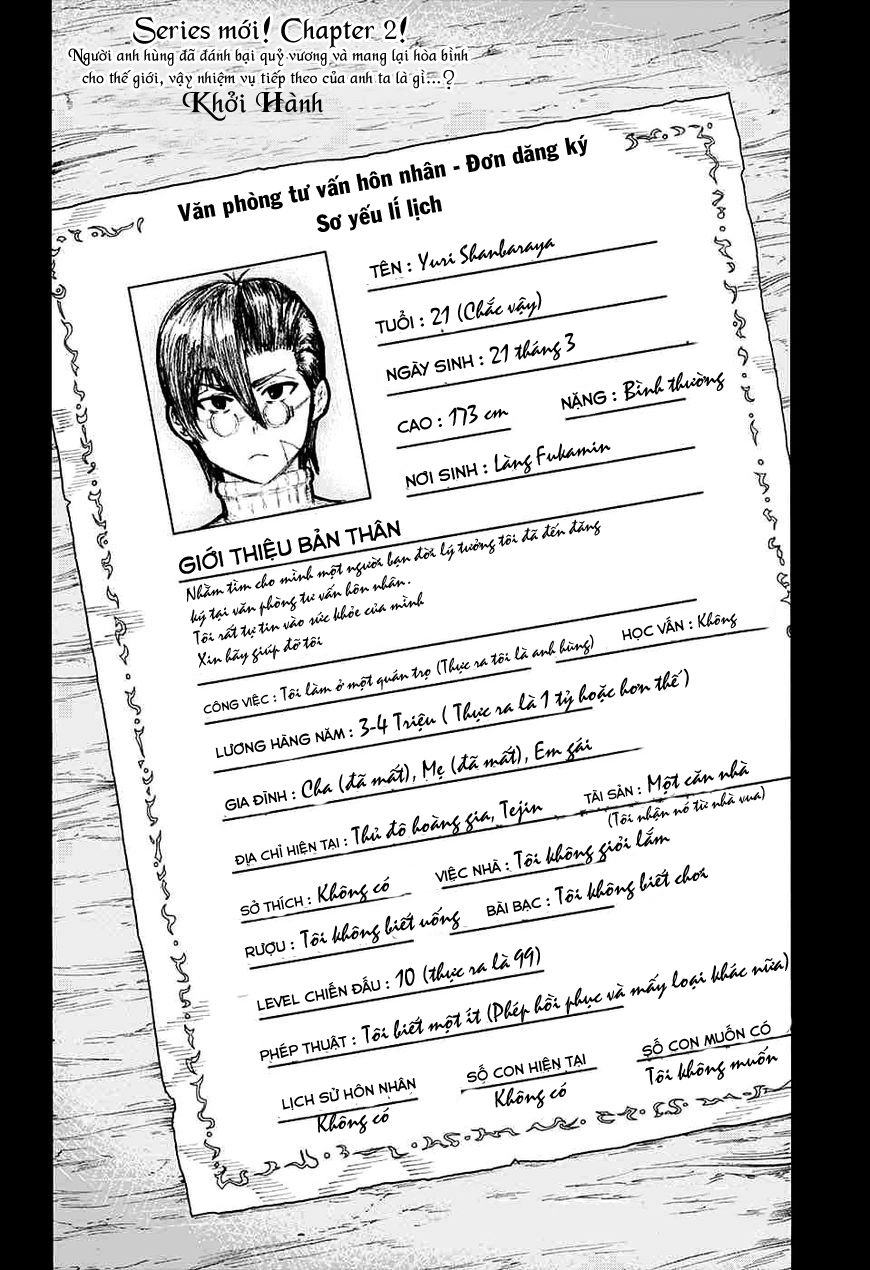 Series mới! Chapter 2!
Người anh hùng đã đánh bại quỷ vương và mang lại hòa bình
cho thế giới, vậy nhiệm vụ tiếp theo của anh ta là gì...?
Khởi Hành
Văn phòng tư vấn hôn nhân - Đơn dăng ký
Sơ yếu lí lịch
TÊN : Yuri Shanbaraya
TUỔI : 21 (Chắc vậy)
NGÀY SINH : 21 tháng 3
CAO : 173 cm NẶNG : Bình thường
NƠI SINH : Làng Fukamin
GIỚI THIỆU BẢN THÂN
Nhằm tìm cho mình một người bạn đời lý tưởng tôi đã đến đăng
ký tại văn phòng tư vấn hôn nhân.
Tôi rất tự tin vào sức khỏe của mình
Xin hãy giúp đỡ tôi
CÔNG VIỆC : Tôi làm ở một quán trọ (Thực ra tôi là anh hùng) HỌC VẤN : Không
LƯƠNG HÀNG NĂM : 3-4 Triệu ( Thực ra là 1 tỷ hoặc hơn thế )
GIA ĐÌNH : Cha (đã mất), Mẹ (đã mất), Em gái
ĐỊA CHỈ HIỆN TẠI : Thủ đô hoàng gia, Tejin TÀI SẢN : Một căn nhà
(Tôi nhận nó từ nhà vua)
SỞ THÍCH : Không có VIỆC NHÀ : Tôi không giỏi lắm
RƯỢU : Tôi không biết uống BÀI BẠC : Tôi không biết chơi
LEVEL CHIẾN ĐẤU : 10 (thực ra là 99)
PHÉP THUẬT : Tôi biết một ít (Phép hồi phục và mấy loại khác nữa)
LỊCH SỬ HÔN NHÂN SỐ CON HIỆN TẠI SỐ CON MUỐN CÓ
Không có Không có Tôi không muốn